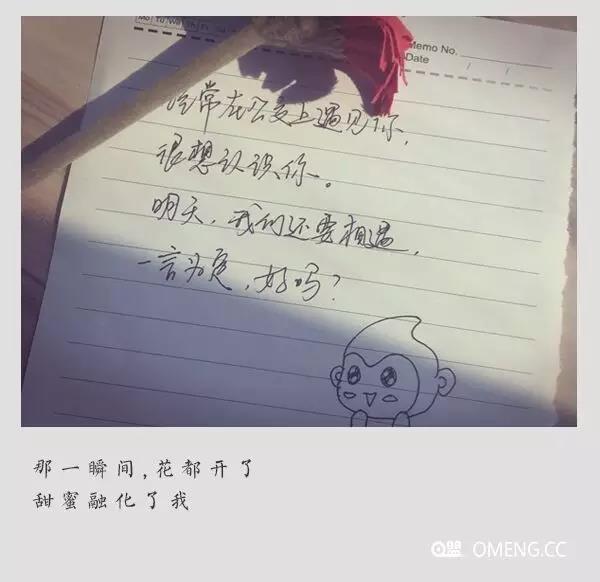 Mo Tu We Th Fr Sa Su
Memo No.
Date / /
经常在公交上遇见你,
很想认识你。
明天,我们还要相遇,
一言为定,好吗?
那一瞬间,花都开了
甜蜜融化了我
盟 OMENG.CC